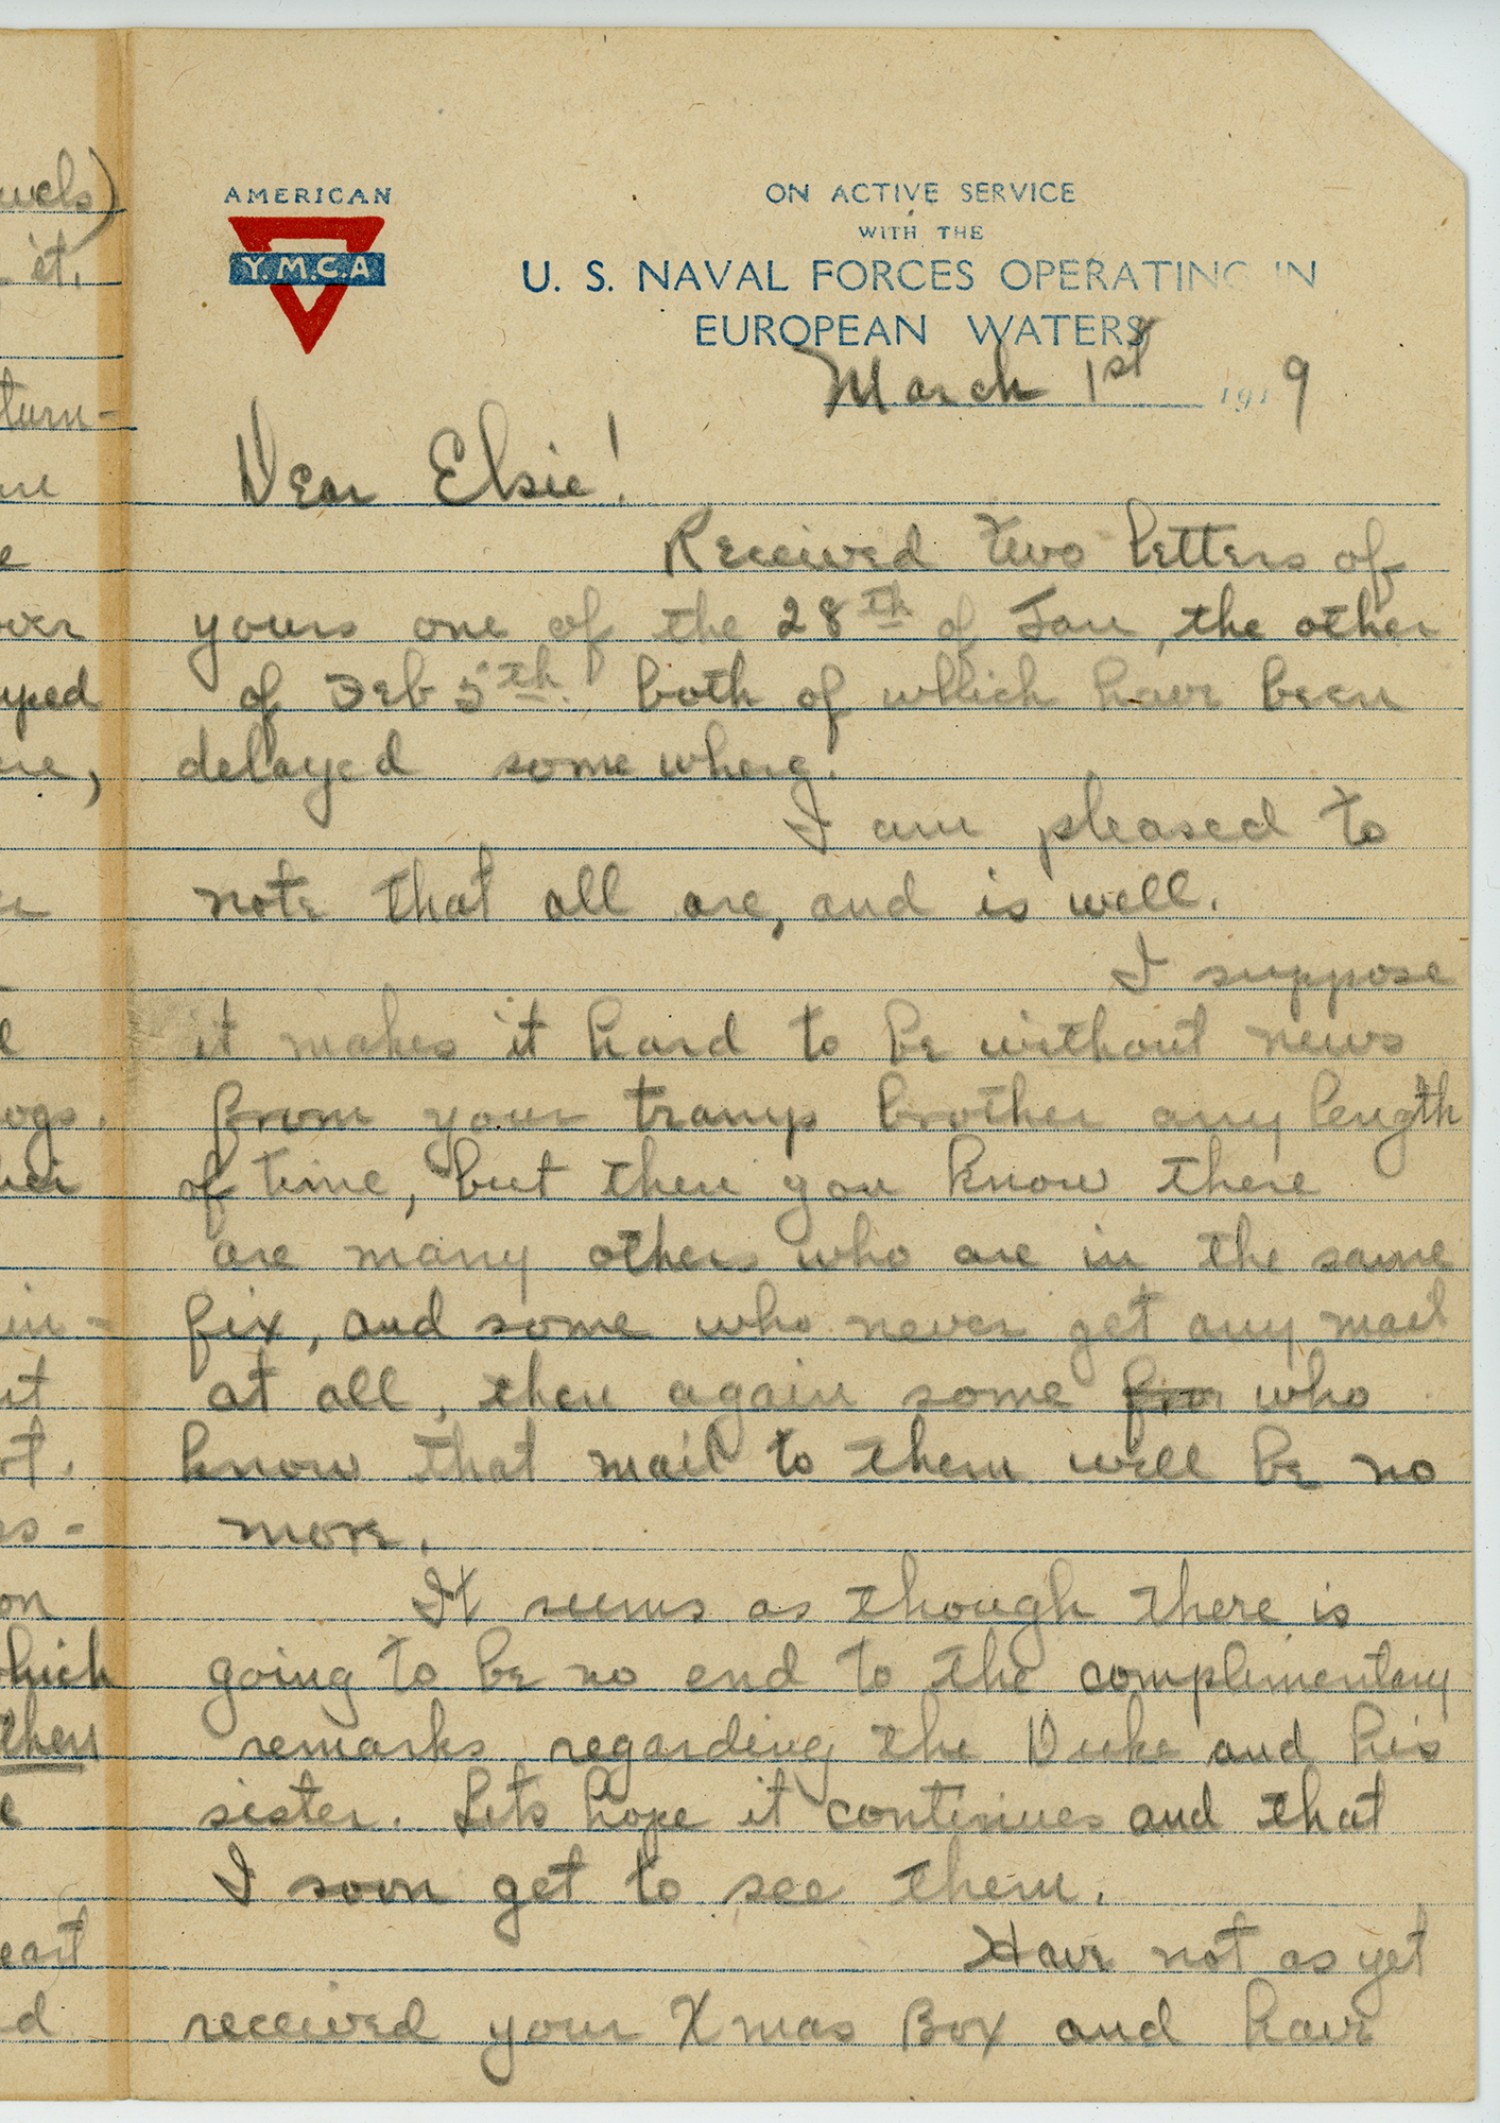 AMERICAN
Y.M.C.A
ON ACTIVE SERVICE
WITH THE
U. S. NAVAL FORCES OPERATING IN
EUROPEAN WATERS
March 1st 1919
Dear Elsie!
Received two letters of
yours one of the 28th of Jan, the other
of Feb 5th. both of which have been
delayed some where.
I am pleased to
note that all are, and is well.
I suppose
it makes it hard to be without news
from your tramp brother any length
of time, but then you know there
are many others who are in the same
fix, and some who never get any mail
at all, then again some for who
know that mail to them will be no
more.
It seems as though there is
going to be no end to the complimentary
remarks regarding the Duke and his
sister. Lets hope it continues and that
I soon get to see them.
Have not as yet
received your Xmas Box and have